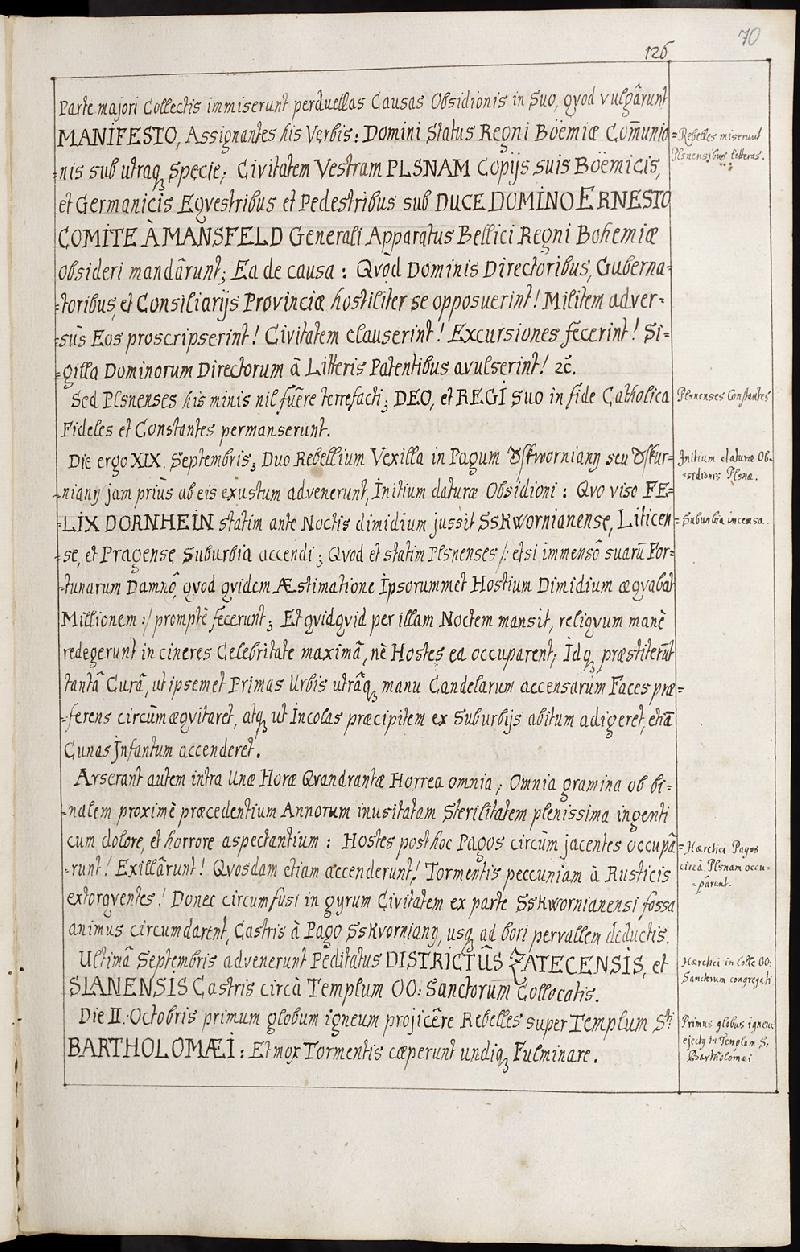 126
70
Parte majori Collectis immiserunt perduellas Causas Obsidionis in Suo, qvod vulgârunt
MANIFESTO, Assignantes his Verbis: Domini Status Regni Böemiæ Com̃unio-
-nis sub utraq; Specie; Civitatem Vestram PLSNAM Copijs suis Böemicis,
et Germanicis Eqvestribus et Pedestribus sub DUCE DOMINO ERNESTO
COMITE À MANSFELD Generali Apparatus Bellici Regni Bohemiæ
obsideri mandârunt; Ea de causa: Qvod Dominis Directoribus, Guberna-
-toribus, et Consiliarijs Provinciæ hostiliter se opposuerint! Militem adver-
-sus Eos proscripserint! Civitatem clauserint! Excursiones fecerint! Si-
-gilla Dominorum Directorum à Litteris Patentibus avulserint! &c.
Sed Plsnenses his minis nil fuêre terrefacti; DEO, et REGI Suo in fide Catholica
Fideles et Constantes permanserunt.
Die ergo XIX. Septembris; Duo Rebellium Vexilla in Pagum Sskworniany seu Sskur-
-niany jam prius ab eis exustum advenerunt, Initium daturæ Obsidioni: Qvo viso FE-
-LIX DORNHEIN statim ante Noctis dimidium jussit Sskwornianense, Liticen-
-se, et Pragense Suburbia accendi; Qvod et statim Plsnenses /: etsi immensô suarũ For-
-tunarum Damnô, qvod qvidem Æstimatione Ipsorummet Hostium Dimidium æqvabat
Millionem :/ promptè fecerunt; Et qvidqvid per illam Noctem mansit, reliqvum manè
redegerunt in cineres Celebritate maximâ, nè Hostes ea occuparent; Idq; præstiterũt
tantâ Curâ, ut ipsemet Primas Urbis utrâq; manu Candelarum accensarum Faces præ-
-ferens circùmæqvitaret, atq; ut Incolas præcipitem ex Suburbijs abitum adigeret, etiã
Cunas Infantum accenderet.
Arserant autem intra Unæ Horæ Qvandrantẽ Horrea omnia; Omnia gramina ob bi-
-nalem proximè præcedentium Annorum inusitatam Sterilitatem plenissima ingenti
cum dolore, et horrore aspectantium: Hostes post hoc Pagos circùm jacentes occupâ-
-runt! Exillârunt! Qvosdam etiam accenderunt! Tormentis peccuniam à Rusticis
extorqventes! Donec circumfusi in gyrum Civitatem ex parte Sskwornianensi, fossa
animus circumdarent, Castris à Pago Sskvorniany, usq; ad bori pervallem deductis.
Ultimâ Septembris advenerunt Peditatus DISTRICTÛS ZATECENSIS, et
SLANENSIS Castris circà Templum OO: Sanctorum Collocatis.
Die II. Octobris primum globum igneum projicêre Rebelles super Templum Sti
BARTHOLOMÆI: Et mox Tormentis cæperunt undiq; Fulminare.
Rebelles miserunt
Plsnensibus literas.
Plsnenses Constantes
Initium daturæ Ob-
-sidionis Plsnæ.
Suburbia incensa.
Hæretici Pagos
circà Plsnam occu-
-parunt.
Hæretici in Colle OO:
Sanctorum congregati
Primus globus igneus
ejectq; in Templum S.
Bartholomæi